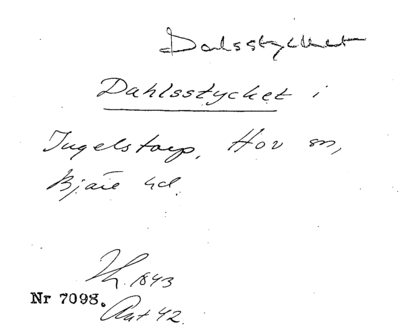 Dalsstycket
Dahlsstycket i
Ingelstorp, Hov sn,
Bjäre hd.
Lh. 1843
Nr 7098.
Akt 42.